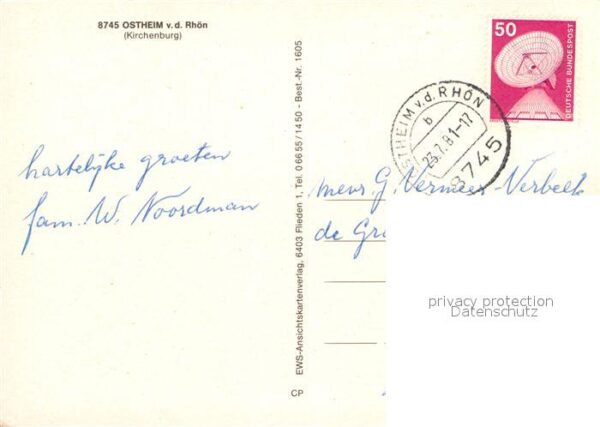 8745 OSTHEIM v. d. Rhön
(Kirchenburg)
hartelijke groeten
fam. W. Noordman
EWS-Ansichtskartenverlag, 6403 Flieden 1, Tel. 0 66 55 / 14 50 - Best.-Nr. 1605
CP
50
DEUTSCHE BUNDESPOST
OSTHEIM v. d. RHÖN
b
23.7.81-17
8745
mevr. G. Vermeer-Verbeek
de Gr
privacy protection
Datenschutz